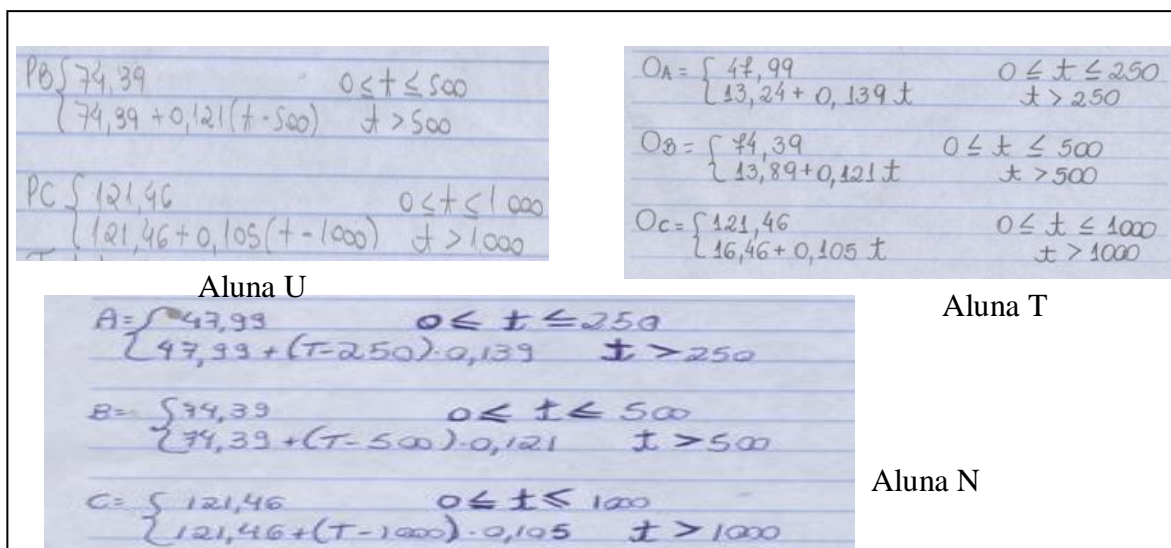 PB { 74,39 0 ≤ t ≤ 500
74,39 + 0,121(t - 500) t > 500
PC { 121,46 0 ≤ t ≤ 1 000
121,46 + 0,105(t - 1000) t > 1000
Aluna U
OA = { 47,99 0 ≤ t ≤ 250
13,24 + 0,139 t t > 250
OB = { 74,39 0 ≤ t ≤ 500
13,89 + 0,121 t t > 500
OC = { 121,46 0 ≤ t ≤ 1000
16,46 + 0,105 t t > 1000
Aluna T
A = { 47,99 0 ≤ t ≤ 250
47,99 + (T - 250) · 0,139 t > 250
B = { 74,39 0 ≤ t ≤ 500
74,39 + (T - 500) · 0,121 t > 500
C = { 121,46 0 ≤ t ≤ 1000
121,46 + (T - 1000) · 0,105 t > 1000
Aluna N